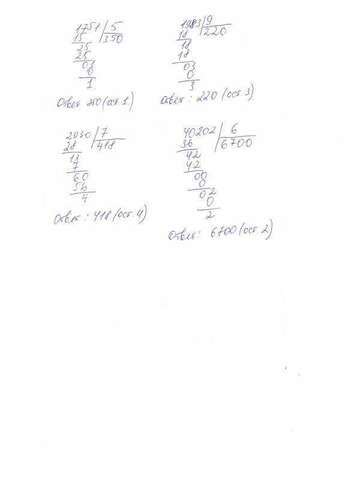 1751 | 5
15 | 350
25
25
01
0
1
Ответ 350 (ост. 1)
1983 | 9
18 | 220
18
18
03
0
3
Ответ: 220 (ост. 3)
2930 | 7
28 | 418
13
7
60
56
4
Ответ: 418 (ост. 4)
40202 | 6
36 | 6700
42
42
00
0
02
0
2
Ответ: 6700 (ост. 2)